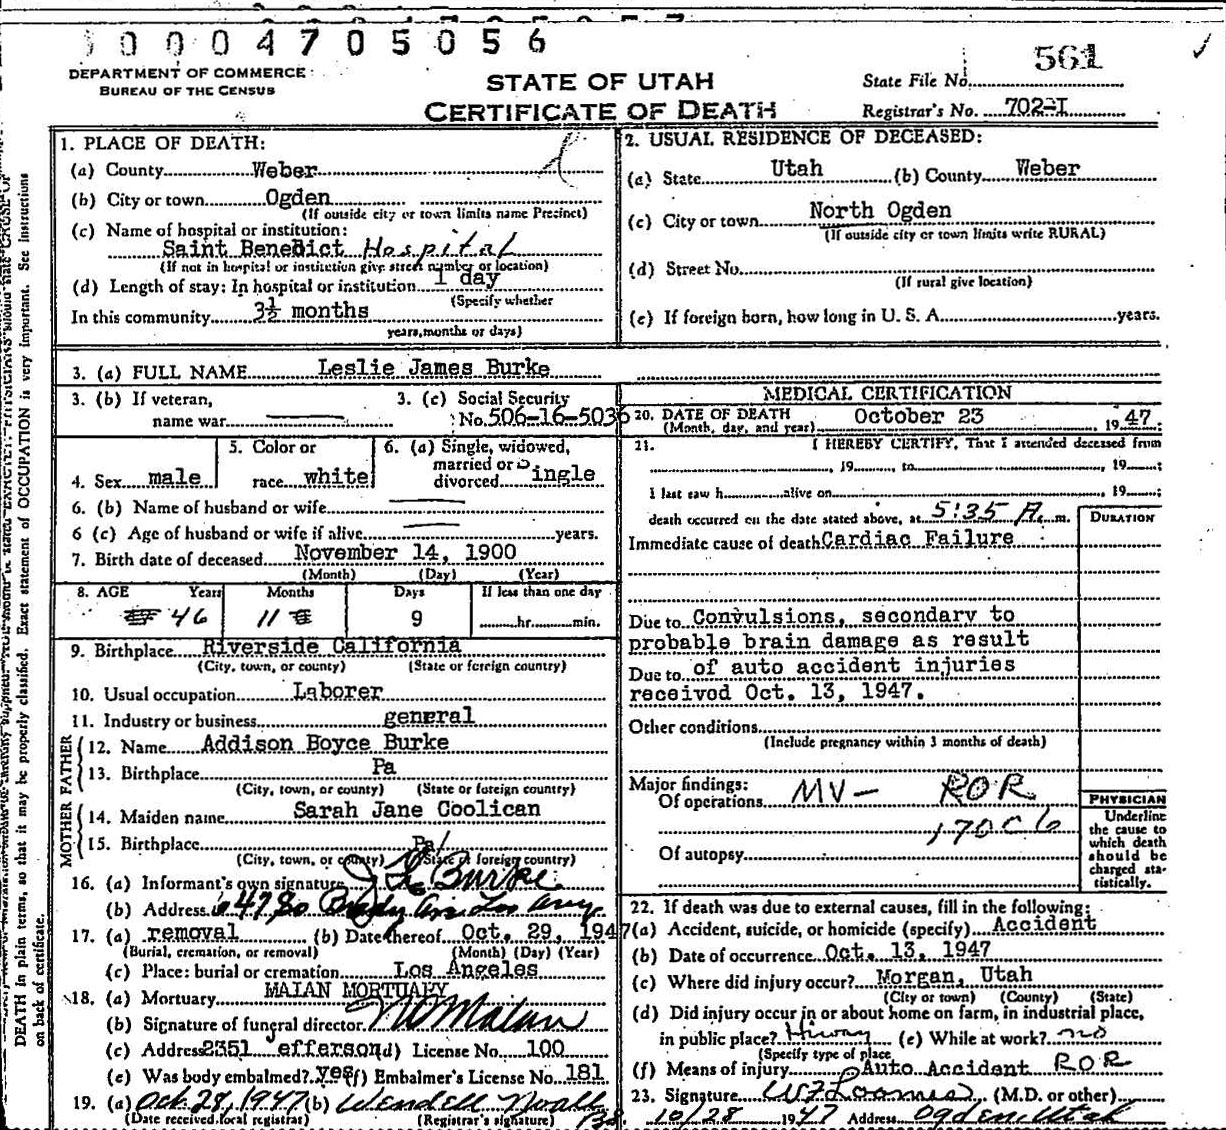 0 0 0 4 7 0 5 0 5 6
DEPARTMENT OF COMMERCE
BUREAU OF THE CENSUS
STATE OF UTAH
CERTIFICATE OF DEATH
State File No. 561
Registrar's No. 702-I
1. PLACE OF DEATH:
(a) County Weber
(b) City or town Ogden
(If outside city or town limits name Precinct)
(c) Name of hospital or institution:
Saint Benedict Hospital
(If not in hospital or institution give street number or location)
(d) Length of stay: In hospital or institution 1 day
(Specify whether
In this community 3½ months
years, months or days)
2. USUAL RESIDENCE OF DECEASED:
(a) State Utah (b) County Weber
(c) City or town North Ogden
(If outside city or town limits write RURAL)
(d) Street No.
(If rural give location)
(e) If foreign born, how long in U. S. A. years.
3. (a) FULL NAME Leslie James Burke
3. (b) If veteran, 3. (c) Social Security
name war No. 506-16-5036
4. Sex male
5. Color or
race white
6. (a) Single, widowed,
married or S
divorced ingle
6. (b) Name of husband or wife
6 (c) Age of husband or wife if alive years.
7. Birth date of deceased November 14, 1900
(Month) (Day) (Year)
8. AGE Years Months Days If less than one day
46 11 9 hr. min.
9. Birthplace Riverside California
(City, town, or county) (State or foreign country)
10. Usual occupation Laborer
11. Industry or business general
FATHER
12. Name Addison Boyce Burke
13. Birthplace Pa
(City, town, or county) (State or foreign country)
MOTHER
14. Maiden name Sarah Jane Coolican
15. Birthplace Pa
(City, town, or county) (State or foreign country)
16. (a) Informant's own signature Burke
(b) Address
17. (a) removal (b) Date thereof Oct. 29, 1947
(Burial, cremation, or removal) (Month) (Day) (Year)
(c) Place: burial or cremation Los Angeles
18. (a) Mortuary MALAN MORTUARY
(b) Signature of funeral director Malan
(c) Address 2351 Jefferson (d) License No. 100
(e) Was body embalmed? yes (f) Embalmer's License No. 181
19. (a) Oct. 28, 1947 (b) Wendell Noall
(Date received local registrar) (Registrar's signature)
MEDICAL CERTIFICATION
20. DATE OF DEATH October 23 1947
(Month, day, and year)
21. I HEREBY CERTIFY, That I attended deceased from
, 19 , to , 19 ;
I last saw h alive on , 19 ;
death occurred on the date stated above, at 5:35 A. m.
DURATION
Immediate cause of death Cardiac Failure
Due to Convulsions, secondary to
probable brain damage as result
Due to of auto accident injuries
received Oct. 13, 1947.
Other conditions
(Include pregnancy within 3 months of death)
Major findings:
Of operations MV- ROR
170c6
Of autopsy
PHYSICIAN
Underline
the cause to
which death
should be
charged sta-
tistically.
22. If death was due to external causes, fill in the following:
(a) Accident, suicide, or homicide (specify) Accident
(b) Date of occurrence Oct. 13, 1947
(c) Where did injury occur? Morgan, Utah
(City or town) (County) (State)
(d) Did injury occur in or about home on farm, in industrial place,
in public place? Hiway (e) While at work? no
(Specify type of place
(f) Means of injury Auto Accident ROR
23. Signature (M.D. or other)
10/28 1947 Address Ogden Utah
DEATH in plain terms, so that it may be properly classified. Exact statement of OCCUPATION is very important. See Instructions
on back of certificate.